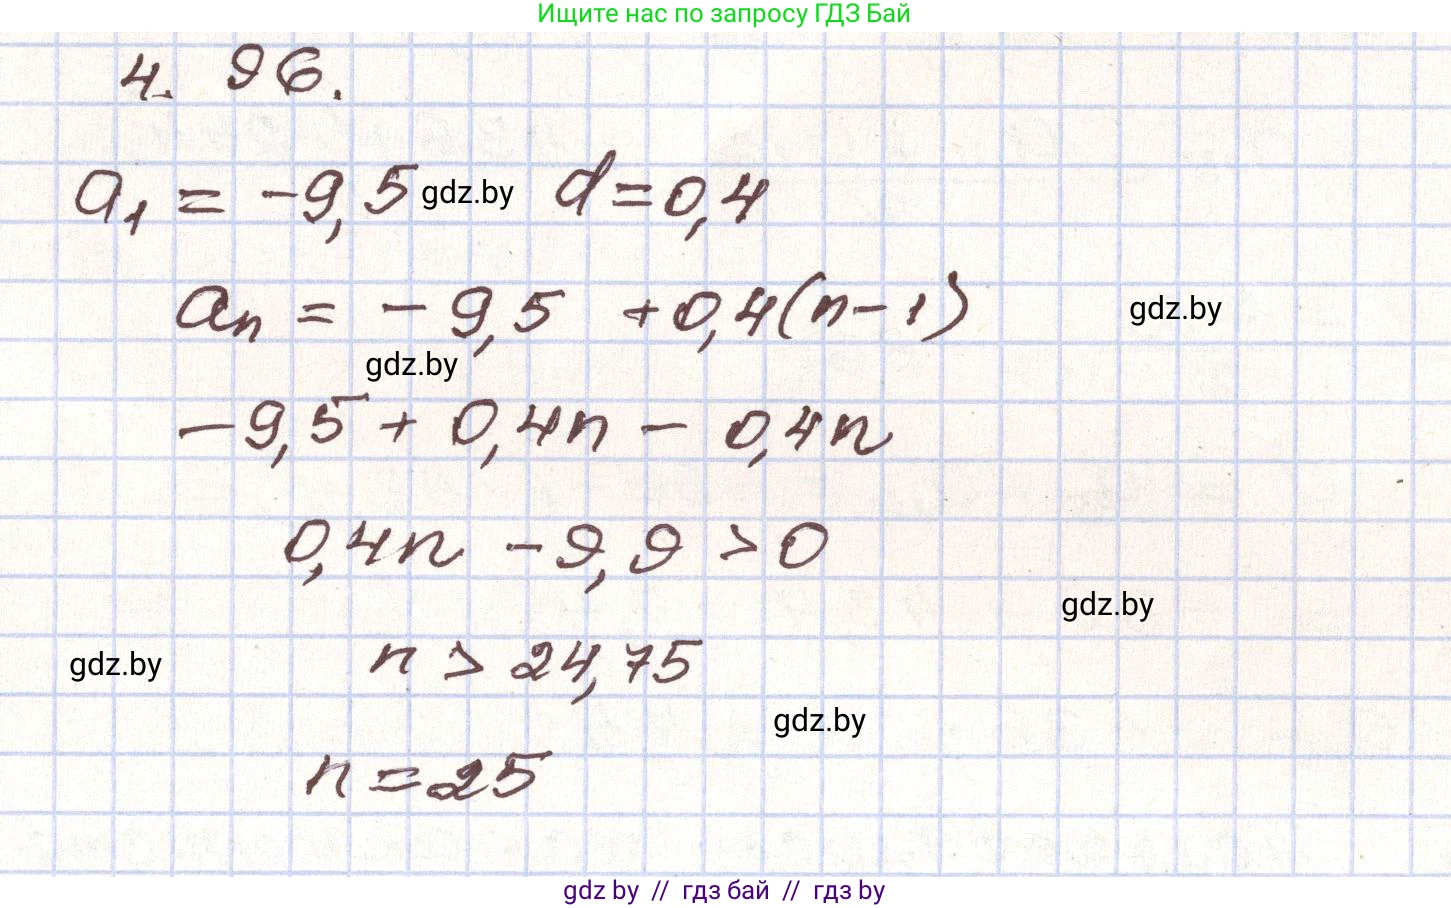 Ищите нас по запросу ГДЗ Бай
4. 96.
a₁ = -9,5 gdz.by d = 0,4
aₙ = -9,5 + 0,4(n-1) gdz.by
gdz.by
-9,5 + 0,4n - 0,4n
0,4n - 9,9 > 0
gdz.by
gdz.by n > 24,75
gdz.by
n = 25
gdz by // гдз бай // гдз by